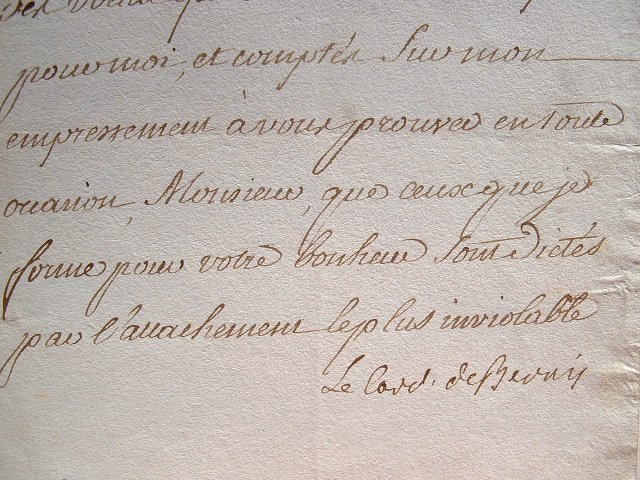 des vœux que
pour moi, et comptés sur mon
empressement à vous prouver en toute
occasion, Monsieur, que ceux que je
forme pour votre bonheur sont dictés
par l'attachement le plus inviolable
Le Card. de Bernis